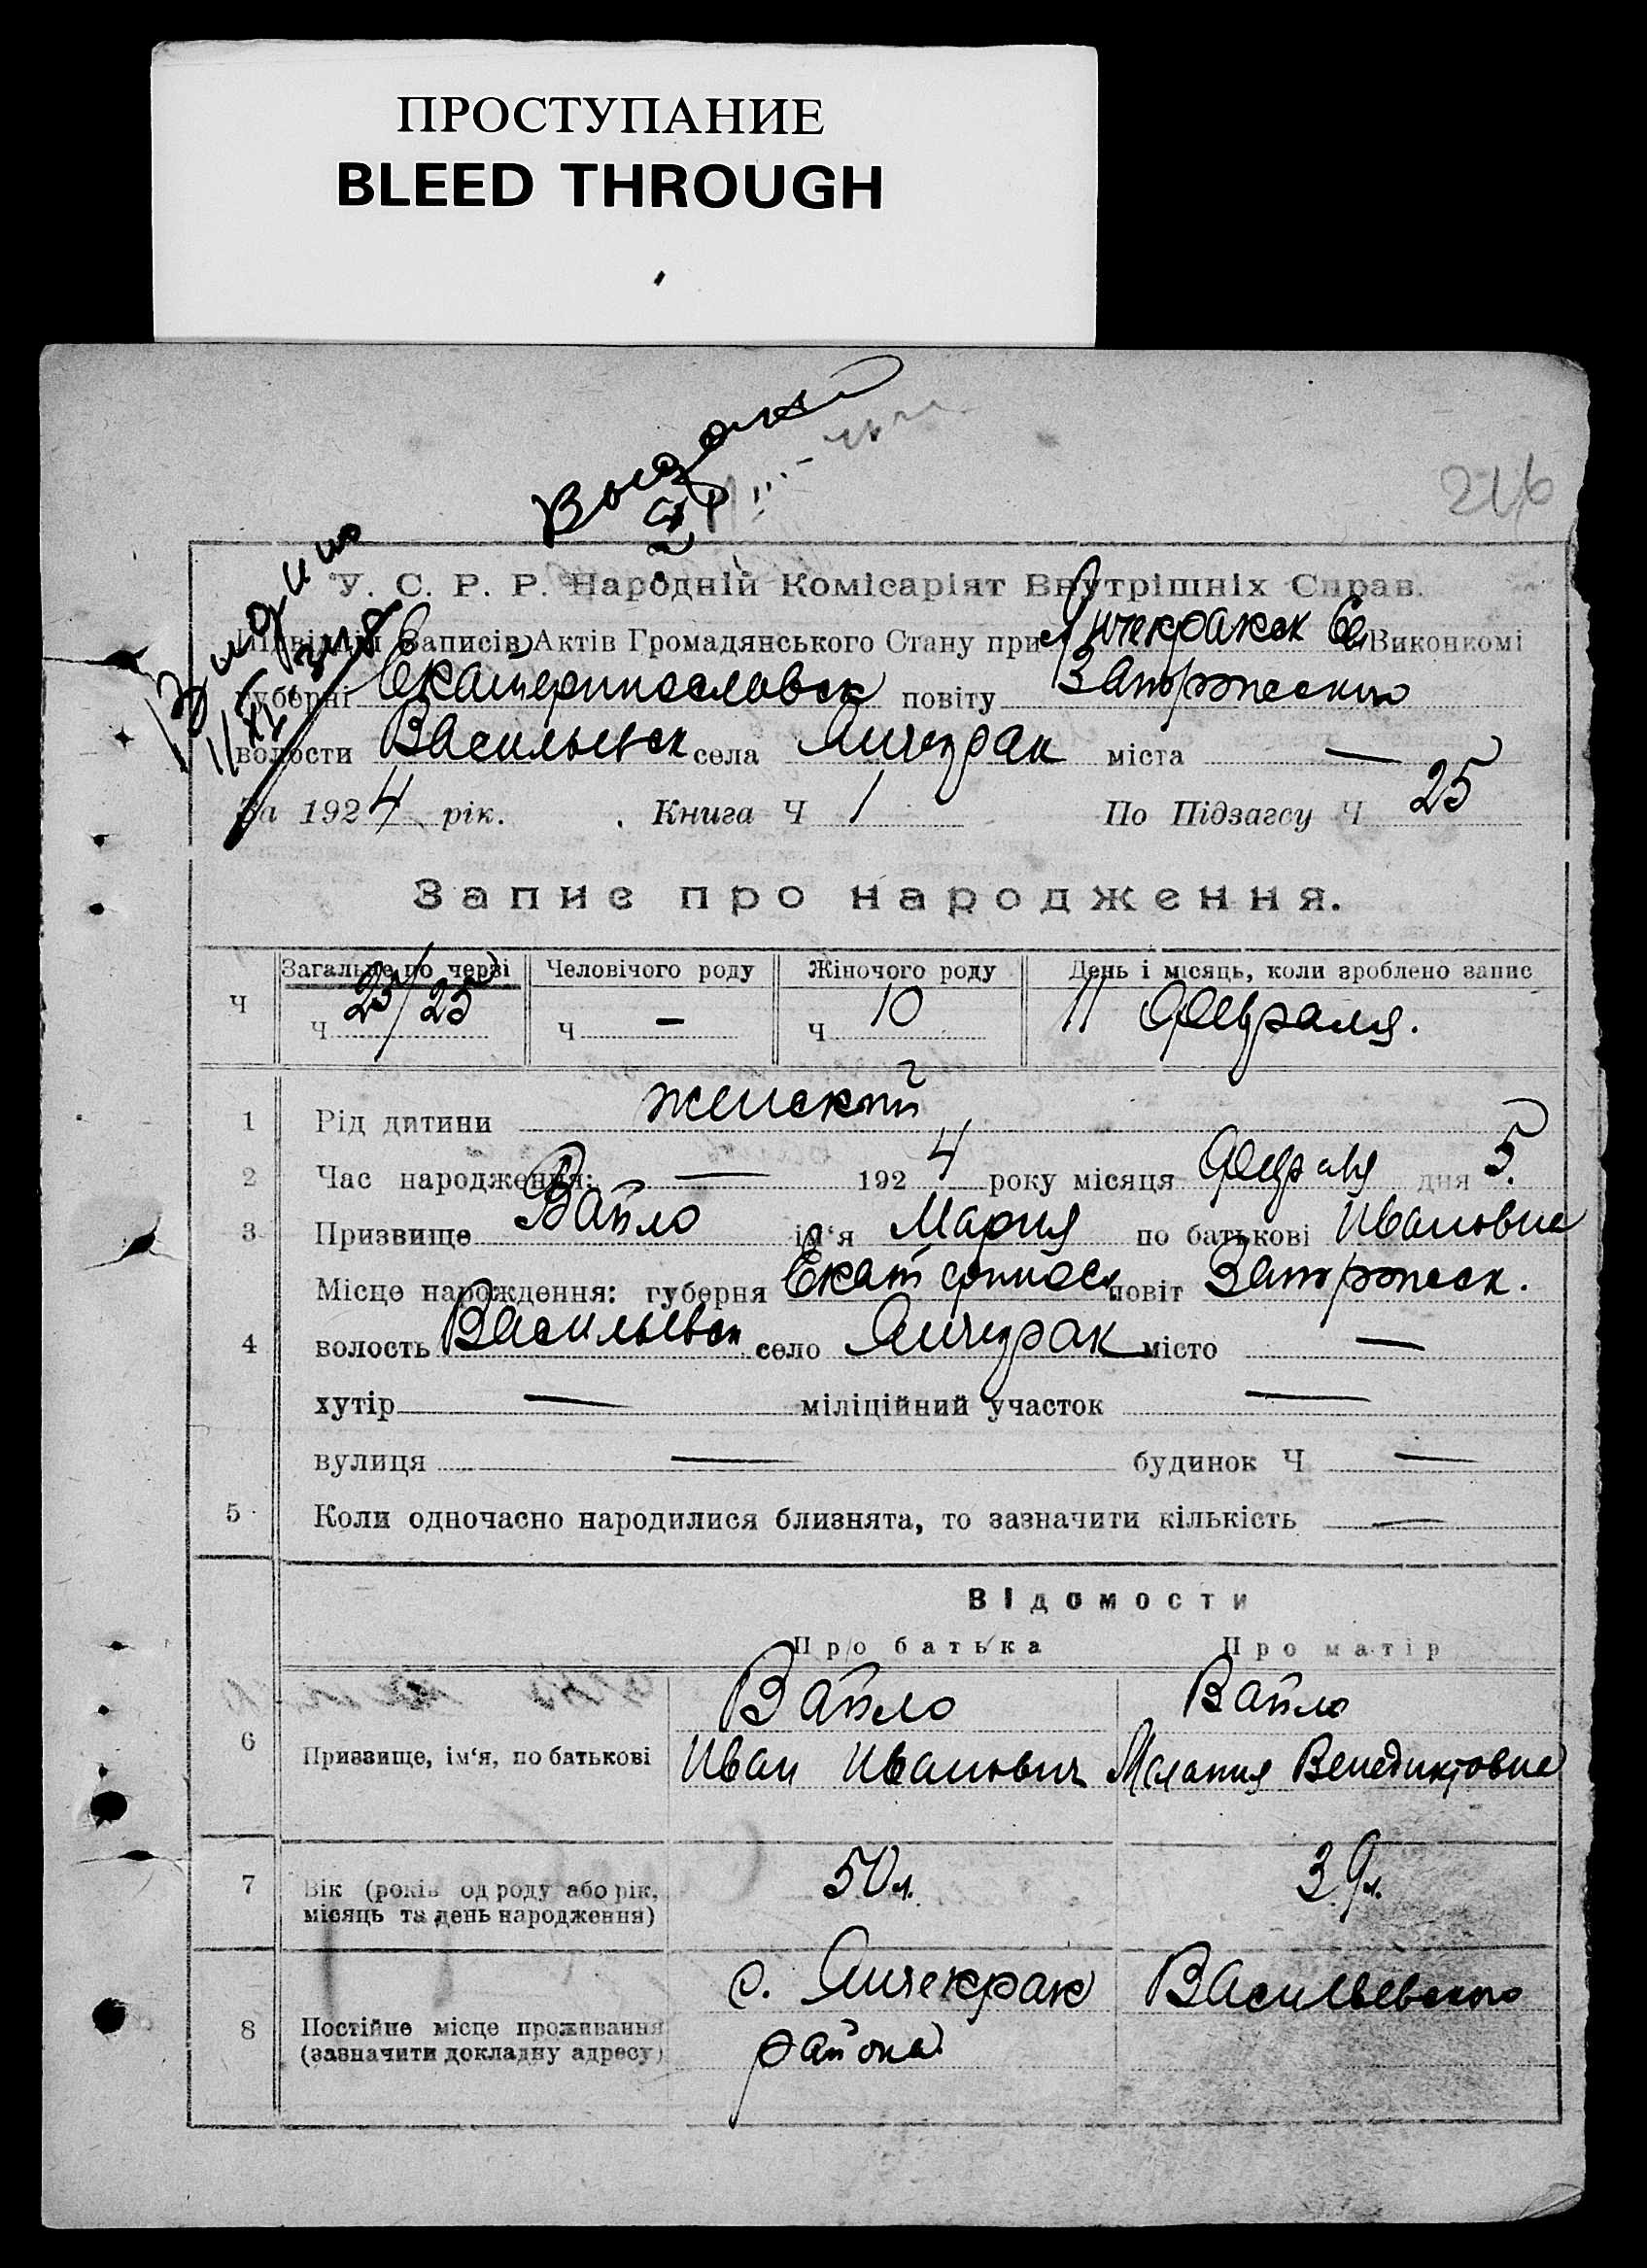 ПРОСТУПАНИЕ
BLEED THROUGH
216
У. С. Р. Р. Народній Комісаріят Внутрішніх Справ.
Підвідділ Записів Актів Громадянського Стану при Янчекракск Се Виконкомі
губерні Екатеринославск повіту Запорожского
волости Васильевск села Янчекрак міста —
За 1924 рік. Книга Ч 1 По Підзагсу Ч 25
Запис про народження.
Загальне по черзі Человічого роду Жіночого роду День і місяць, коли зроблено запис
Ч Ч 25/25 Ч — Ч 10 11 Февраля.
1 Рід дитини женский
2 Час народження: — 1924 року місяця Февраля дня 5.
3 Призвище Вайло ім‘я Мария по батькові Ивановна
Місце нарождення: губерня Екатериносл повіт Запорожск.
4 волость Васильевск село Янчекрак місто —
хутір — міліційний участок —
вулиця — будинок Ч —
5 Коли одночасно народилися близнята, то зазначити кількість —
Відомости
Про батька Про матір
Вайло Вайло
6 Призвище, ім‘я, по батькові Иван Иванович Мелания Венедиктовна
7 Вік (років од роду або рік, 50 л. 39 л.
місяць та день народження)
с. Янчекрак Васильевского
8 Постійне місце проживання района
(зазначити докладну адресу)